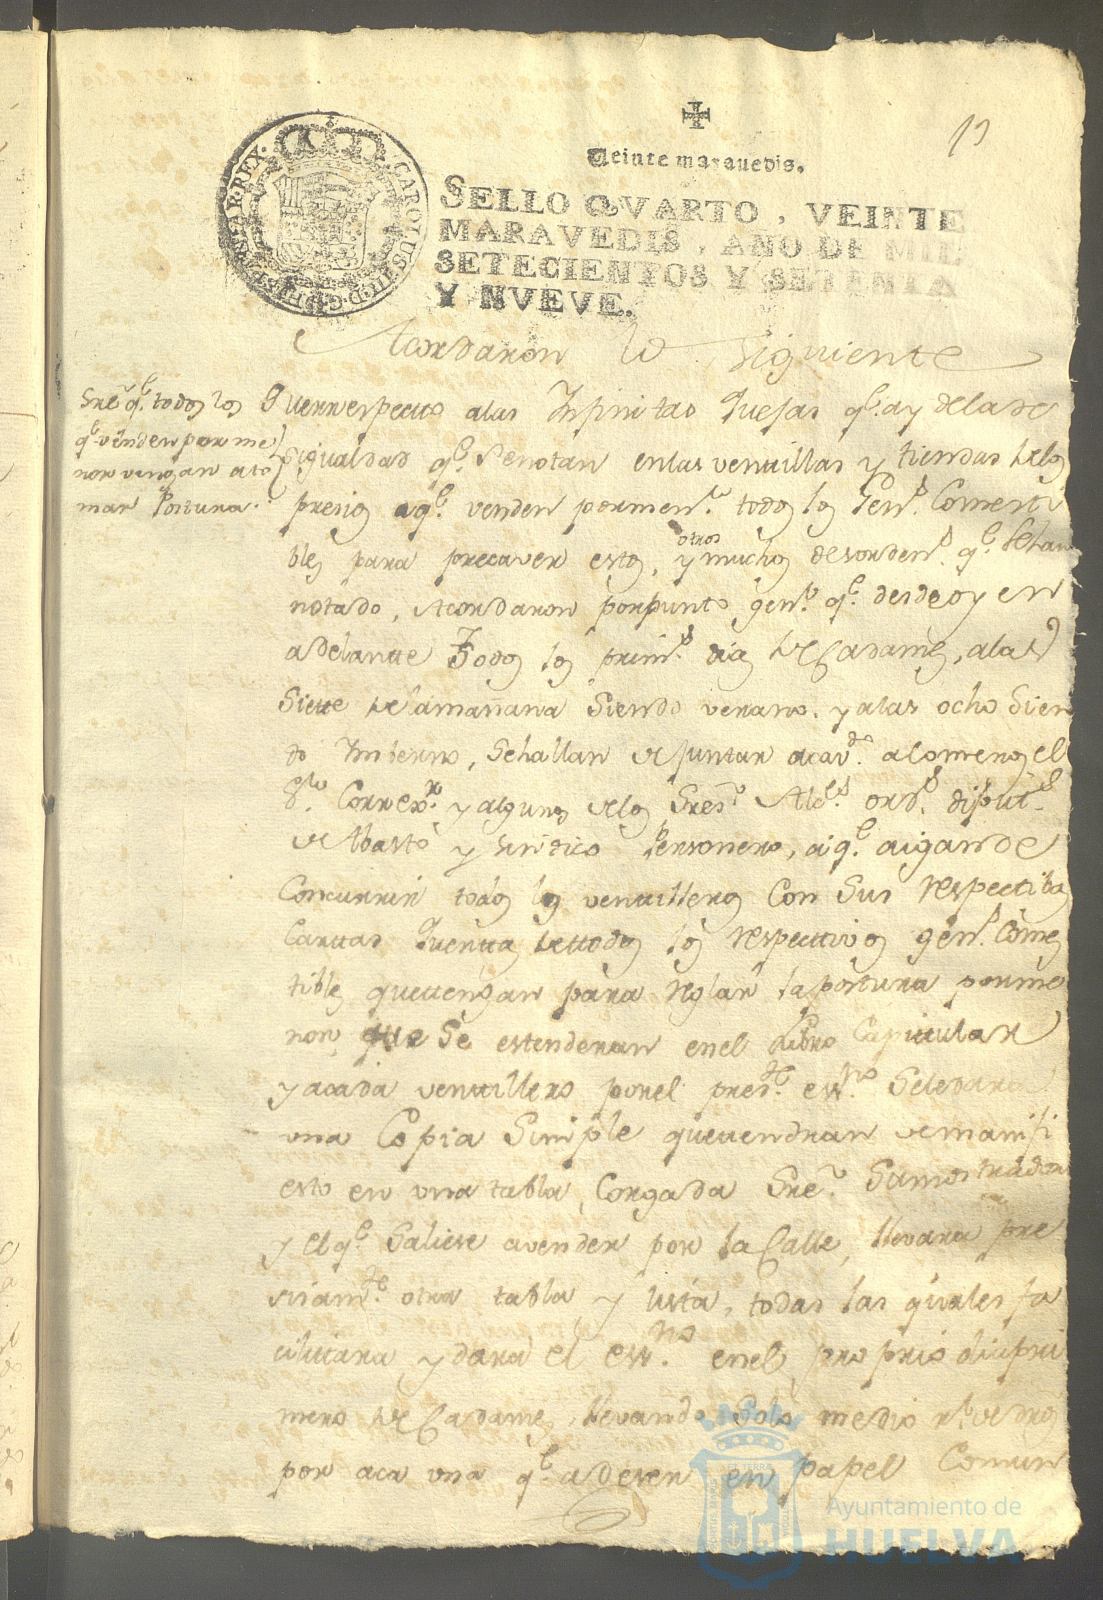 13
Veinte maravedis.
SELLO QVARTO, VEINTE
MARAVEDIS, AÑO DE MIL
SETECIENTOS Y SETENTA
Y NVEVE.
CAROLUS III D G HISPANIAR REX
Acordaron lo Siguiente
Sre q.e todos los
q.e venden por me
nor vengan a to
mar Postura.
Que respecto a las Infinitas Quejas q.e ay de la de
sigualdad q.e Se notan en las ventillas y tiendas de los
presios a q.e venden por men.r todos los Gen.s Comesti
bles para precaver estos, y otros muchos desorden.s q.e Se han
notado, Acordaron por punto gen.l q.e desde oy en
adelante Todos los prim.s dias de Cada mes, a las
Siete de la mañana Siendo verano, y a las ocho Sien
do Imbierno, Se hallan de juntar a cav.do a lo menos el
S.or Correx.r y algunos de los Sres. Alc.s ord.s diput.s
de Abasto y Sindico Personero, a q.e aigan de
Concurrir todos los ventilleros Con Sus respectibas
Cartas Quenta de todos los respectivos gen.s Comes
tibles que tengan para reglar la postura por me
nor, que Se estenderan en el Libro Capitular
y a cada ventillero por el pres.te ess.no Se le dara
una Copia Simple que tendran de manifi
esto en una tabla, Corgada Sre. Su mostrador
y el q.e Saliese a vender por la Calle, llevara pre
sisam.te otra tabla y lista, todas las quales fa
cilitara y dara el ess.no en el proprio dia pri
mero de Cada mes, llevando Solo medio r.l de dros
por aca una q.e a de ser en papel Comun
Ayuntamiento de
HUELVA